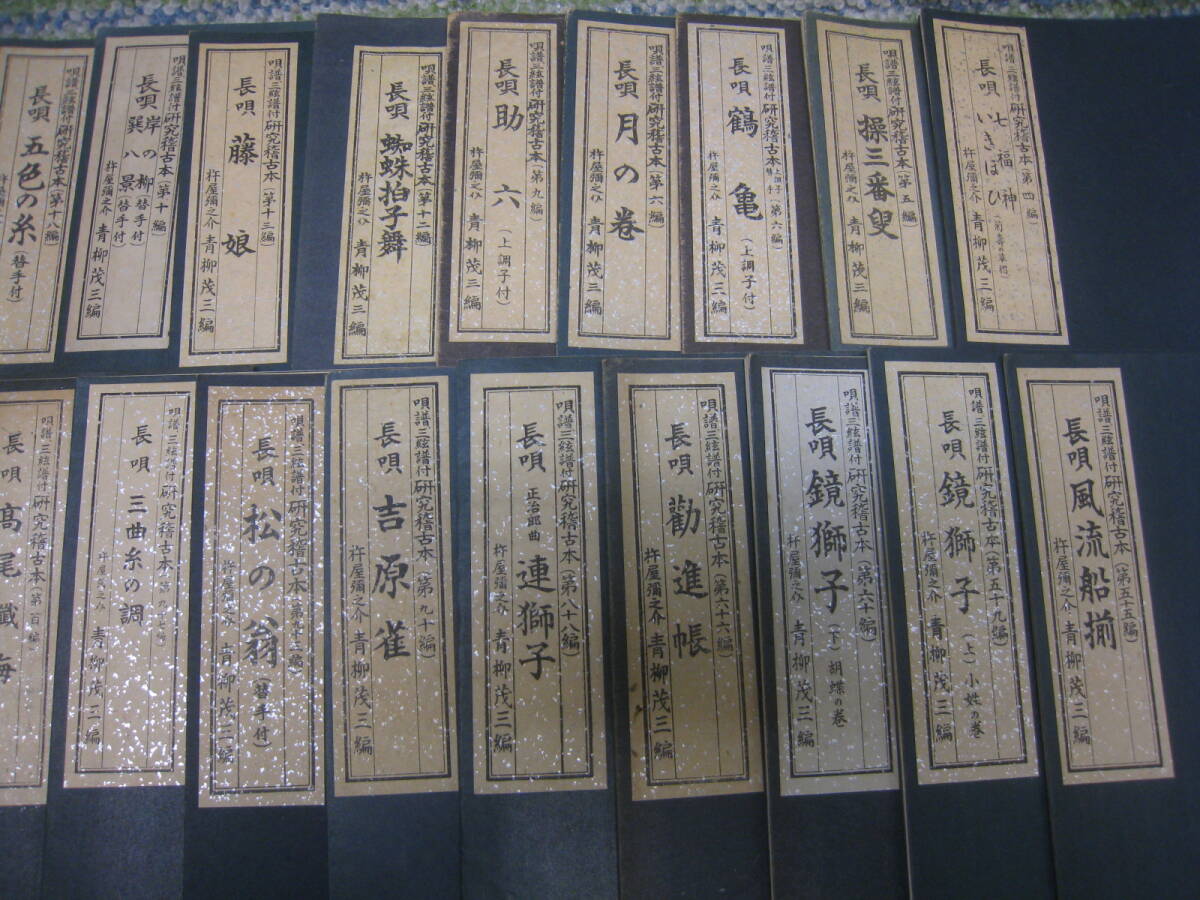 唄譜三絃譜付研究稽古本(第四編)
長唄 七福神
いきほひ
杵屋彌之介 青柳茂三編
唄譜三絃譜付研究稽古本(第五編)
長唄 操三番叟
杵屋彌之介 青柳茂三編
唄譜三絃譜付研究稽古本 (第六編)
長唄 鶴亀
(上調子付)
杵屋彌之介 青柳茂三編
唄譜三絃譜付研究稽古本(第六編)
長唄 月の巻
杵屋彌之介 青柳茂三編
唄譜三絃譜付研究稽古本(第九編)
長唄 助六
(上調子付)
杵屋彌之介 青柳茂三編
唄譜三絃譜付研究稽古本(第十二編)
長唄 蜘蛛拍子舞
杵屋彌之介 青柳茂三編
唄譜三絃譜付研究稽古本(第十三編)
長唄 藤娘
杵屋彌之介 青柳茂三編
唄譜三絃譜付研究稽古本(第十編)
長唄 岸の柳(替手付)
巽八景(替手付)
杵屋彌之介 青柳茂三編
唄譜三絃譜付研究稽古本(第十八編)
長唄 五色の糸(替手付)
唄譜三絃譜付研究稽古本(第五十五編)
長唄 風流船揃
杵屋彌之介 青柳茂三編
唄譜三絃譜付研究稽古本(第五十九編)
長唄 鏡獅子(上)小姓の巻
杵屋彌之介 青柳茂三編
唄譜三絃譜付研究稽古本(第六十編)
長唄 鏡獅子(下)胡蝶の巻
杵屋彌之介 青柳茂三編
唄譜三絃譜付研究稽古本(第六十六編)
長唄 勸進帳
杵屋彌之介 青柳茂三編
唄譜三絃譜付研究稽古本(第八十八編)
長唄 正治郎曲 連獅子
杵屋彌之介 青柳茂三編
唄譜三絃譜付研究稽古本(第九十編)
長唄 吉原雀
杵屋彌之介 青柳茂三編
唄譜三絃譜付研究稽古本(第九十二編)
長唄 松の翁(替手付)
杵屋彌之介 青柳茂三編
唄譜三絃譜付研究稽古本
長唄 三曲糸の調
杵屋彌之介 青柳茂三編
唄譜三絃譜付研究稽古本(第百編)
長唄 髙尾懺海